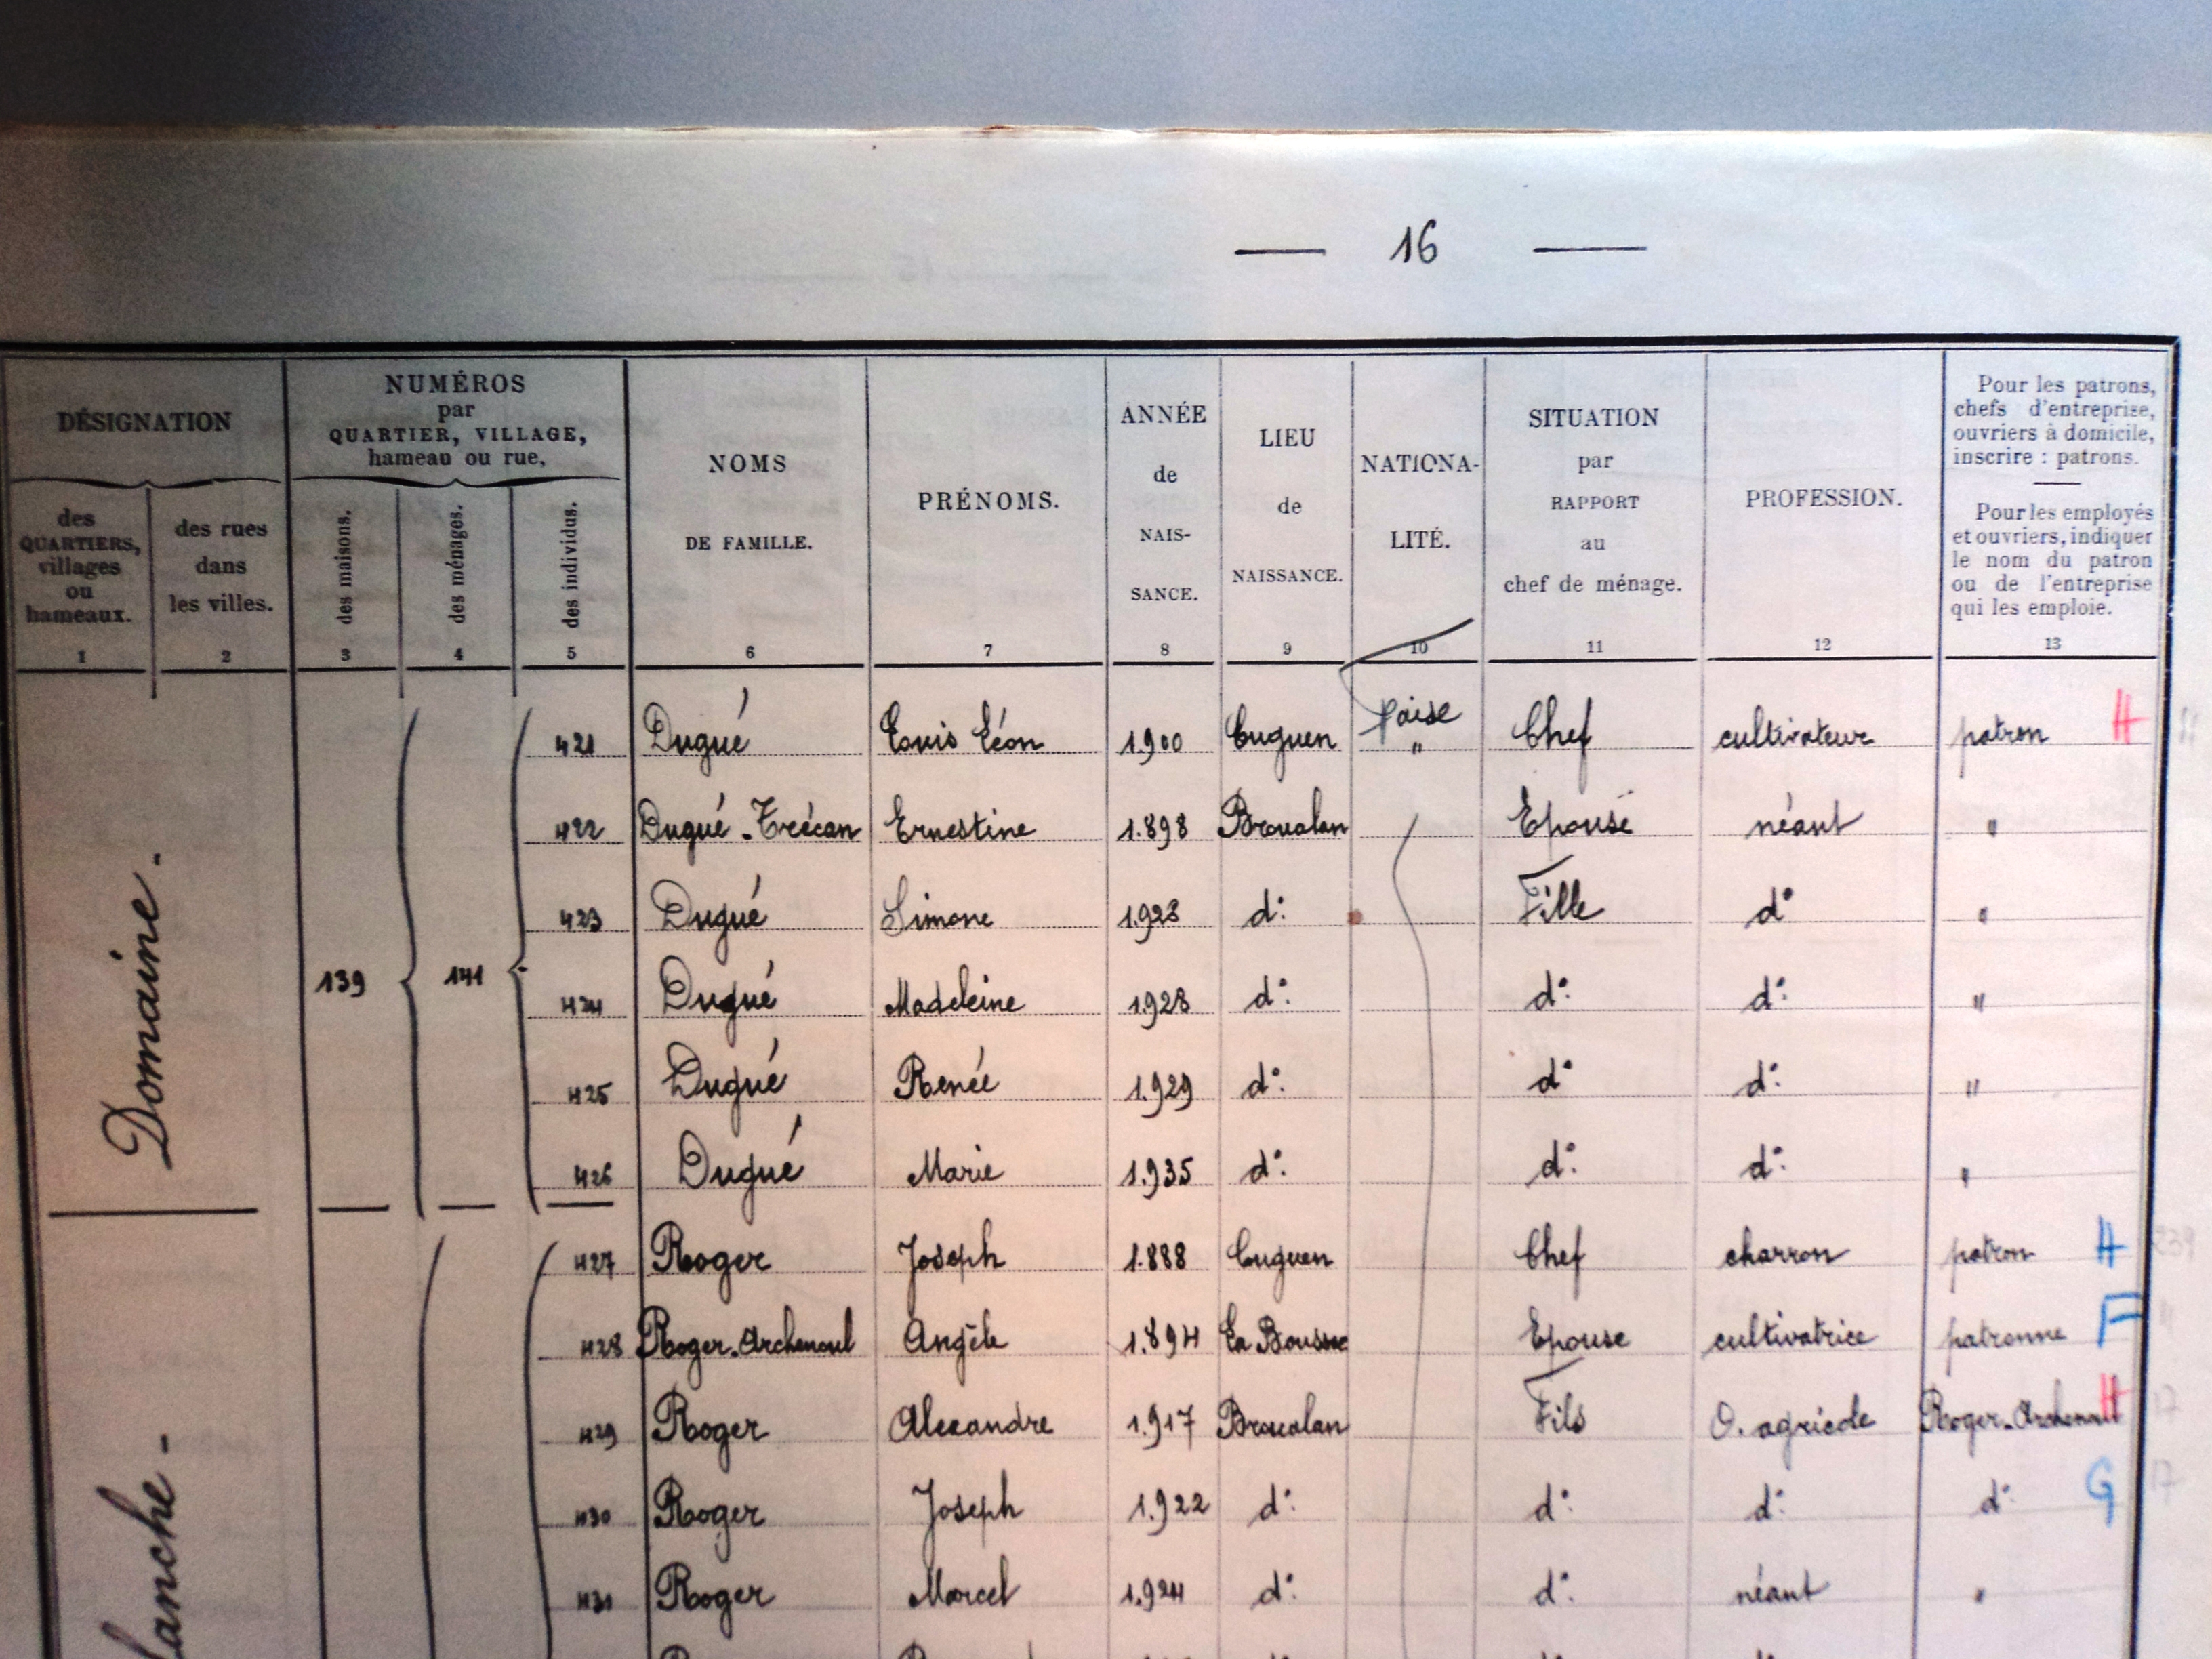 — 16 —
DÉSIGNATION
des QUARTIERS, villages ou hameaux.
des rues dans les villes.
NUMÉROS
par
QUARTIER, VILLAGE,
hameau ou rue,
des maisons.
des ménages.
des individus.
NOMS
DE FAMILLE.
PRÉNOMS.
ANNÉE
de
NAIS-
SANCE.
LIEU
de
NAISSANCE.
NATIONA-
LITÉ.
SITUATION
par
RAPPORT
au
chef de ménage.
PROFESSION.
Pour les patrons,
chefs d'entreprise,
ouvriers à domicile,
inscrire : patrons.
Pour les employés
et ouvriers, indiquer
le nom du patron
ou de l'entreprise
qui les emploie.
1 2 3 4 5 6 7 8 9 10 11 12 13
Domaine.
139 141
421 Dugué Louis Léon 1.900 Cuguen fçaise " Chef cultivateur patron H
422 Dugué-Trécan Ernestine 1.898 Broualan Epouse néant "
423 Dugué Simone 1.923 d°: Fille d° "
424 Dugué Madeleine 1.928 d°: d°: d°: "
425 Dugué Renée 1.929 d°: d° d°: "
426 Dugué Marie 1.935 d°: d°: d°: "
427 Roger Joseph 1.888 Cuguen Chef charron patron H
428 Roger-Archenoul Angèle 1.894 La Boussac Epouse cultivatrice patronne F
429 Roger Alexandre 1.917 Broualan Fils O. agricole Roger-Archenoul H
430 Roger Joseph 1.922 d°: d°: d°: d°: G
431 Roger Marcel 1.924 d°: d°: néant "
lanche -